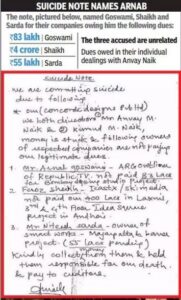 SUICIDE NOTE NAMES ARNAB
The note, pictured below, named Goswami, Shaikh and
Sarda for their companies owing him the following dues:
₹83 lakh | Goswami
₹4 crore | Shaikh
₹55 lakh | Sarda
The three accused are unrelated
Dues owed in their individual
dealings with Anvay Naik
Suicide Note
We are committing suicide
due to following
* our (concorde designs Pvt ltd)
we both directors Mr Anvay M.
Naik & Kumud M. Naik,
money is stuck & following owners
of respected companies are not paying
our legitimate dues.
1. Mr Arnab goswami - ARG outlier
of Republic TV. not paid 83 Lacs
for Bombay dying studio project
2. Feroz shaikh - Icastx / skimedia
not paid our 400 lacs in Laxmi,
3rd & 4th floor Idea Square
project in Andheri.
3. Mr Nitesh sarda - owner of
smart works - Magarpatta & baner
project. (55 lacs pending)
Kindly collect from them & hold
them responsible for our death
& pay to creditors.